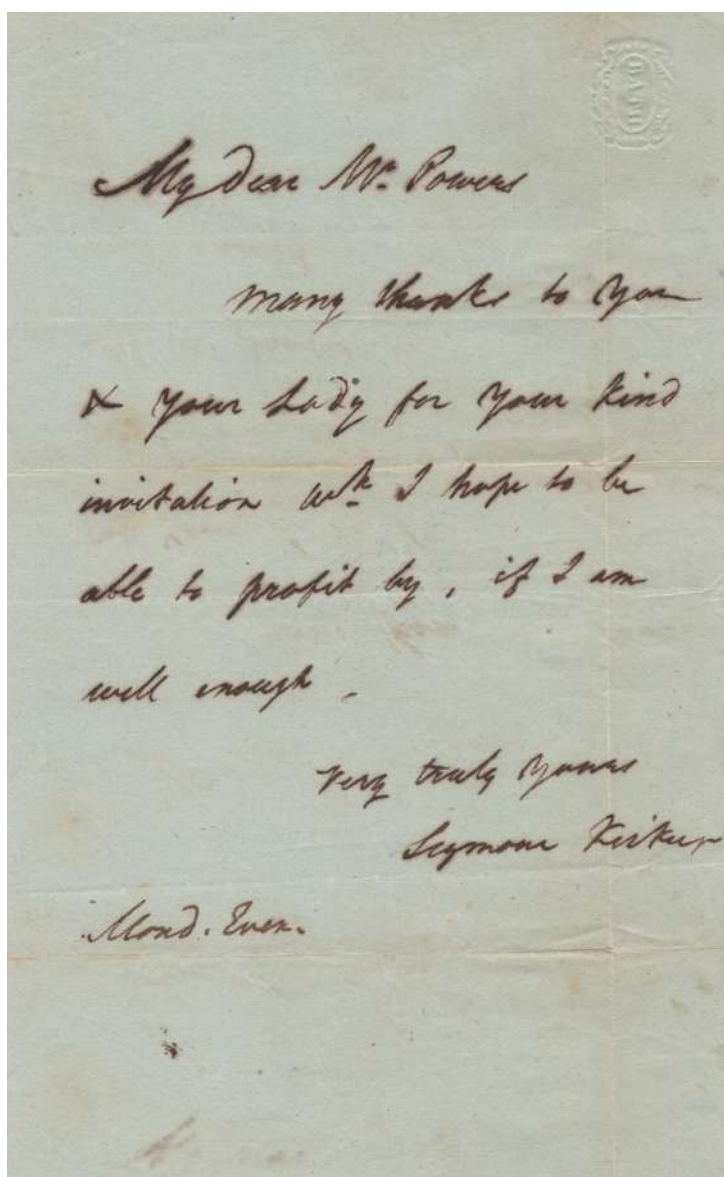 BATH
My Dear Mr. Powers
Many thanks to you
& your Lady for your kind
invitation wh. I hope to be
able to profit by, if I am
well enough.
Very truly yours
Seymour Kirkup
Mond. Even.